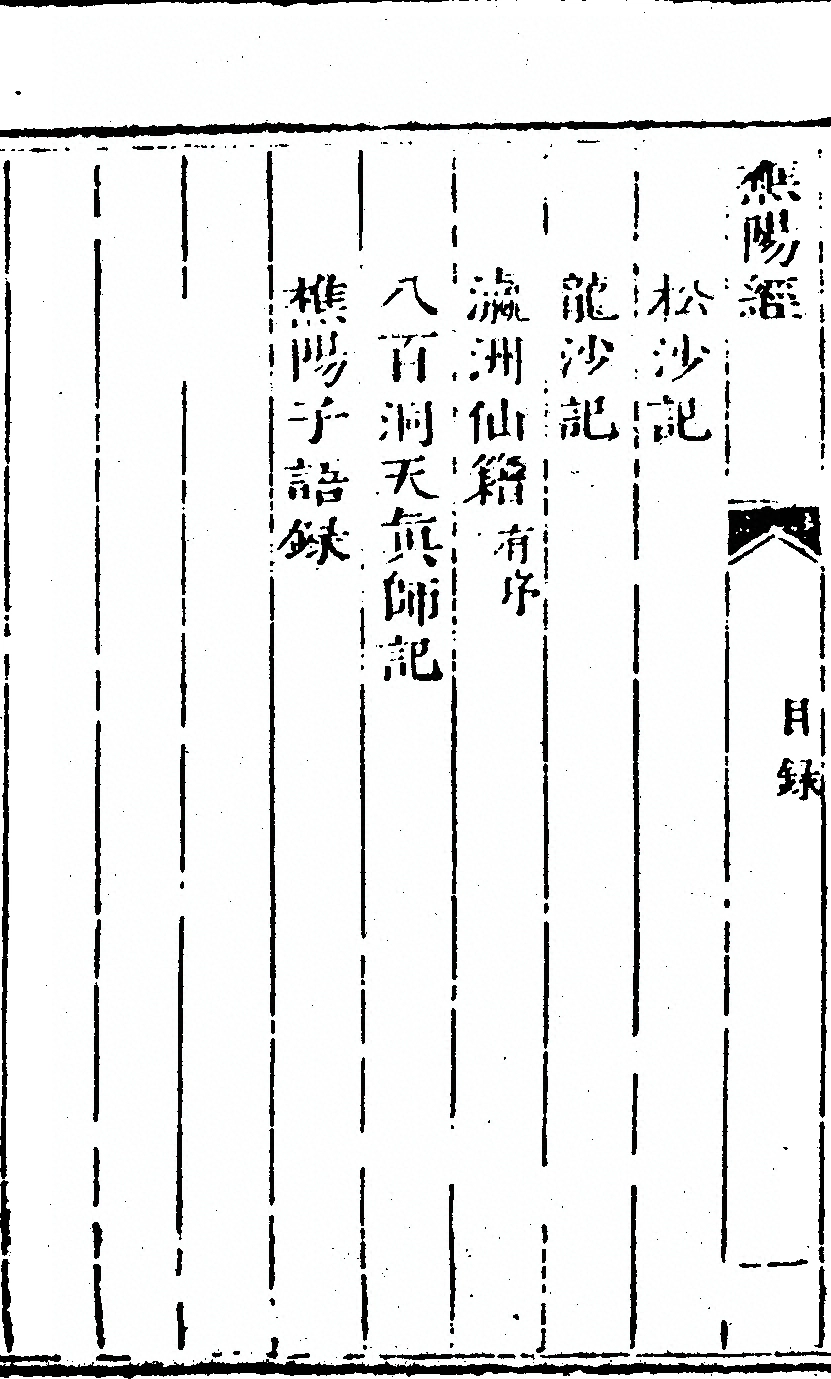 樵陽經
目録
一
松沙記
龍沙記
瀛洲仙籍有序
八百洞天眞師記
樵陽子語録